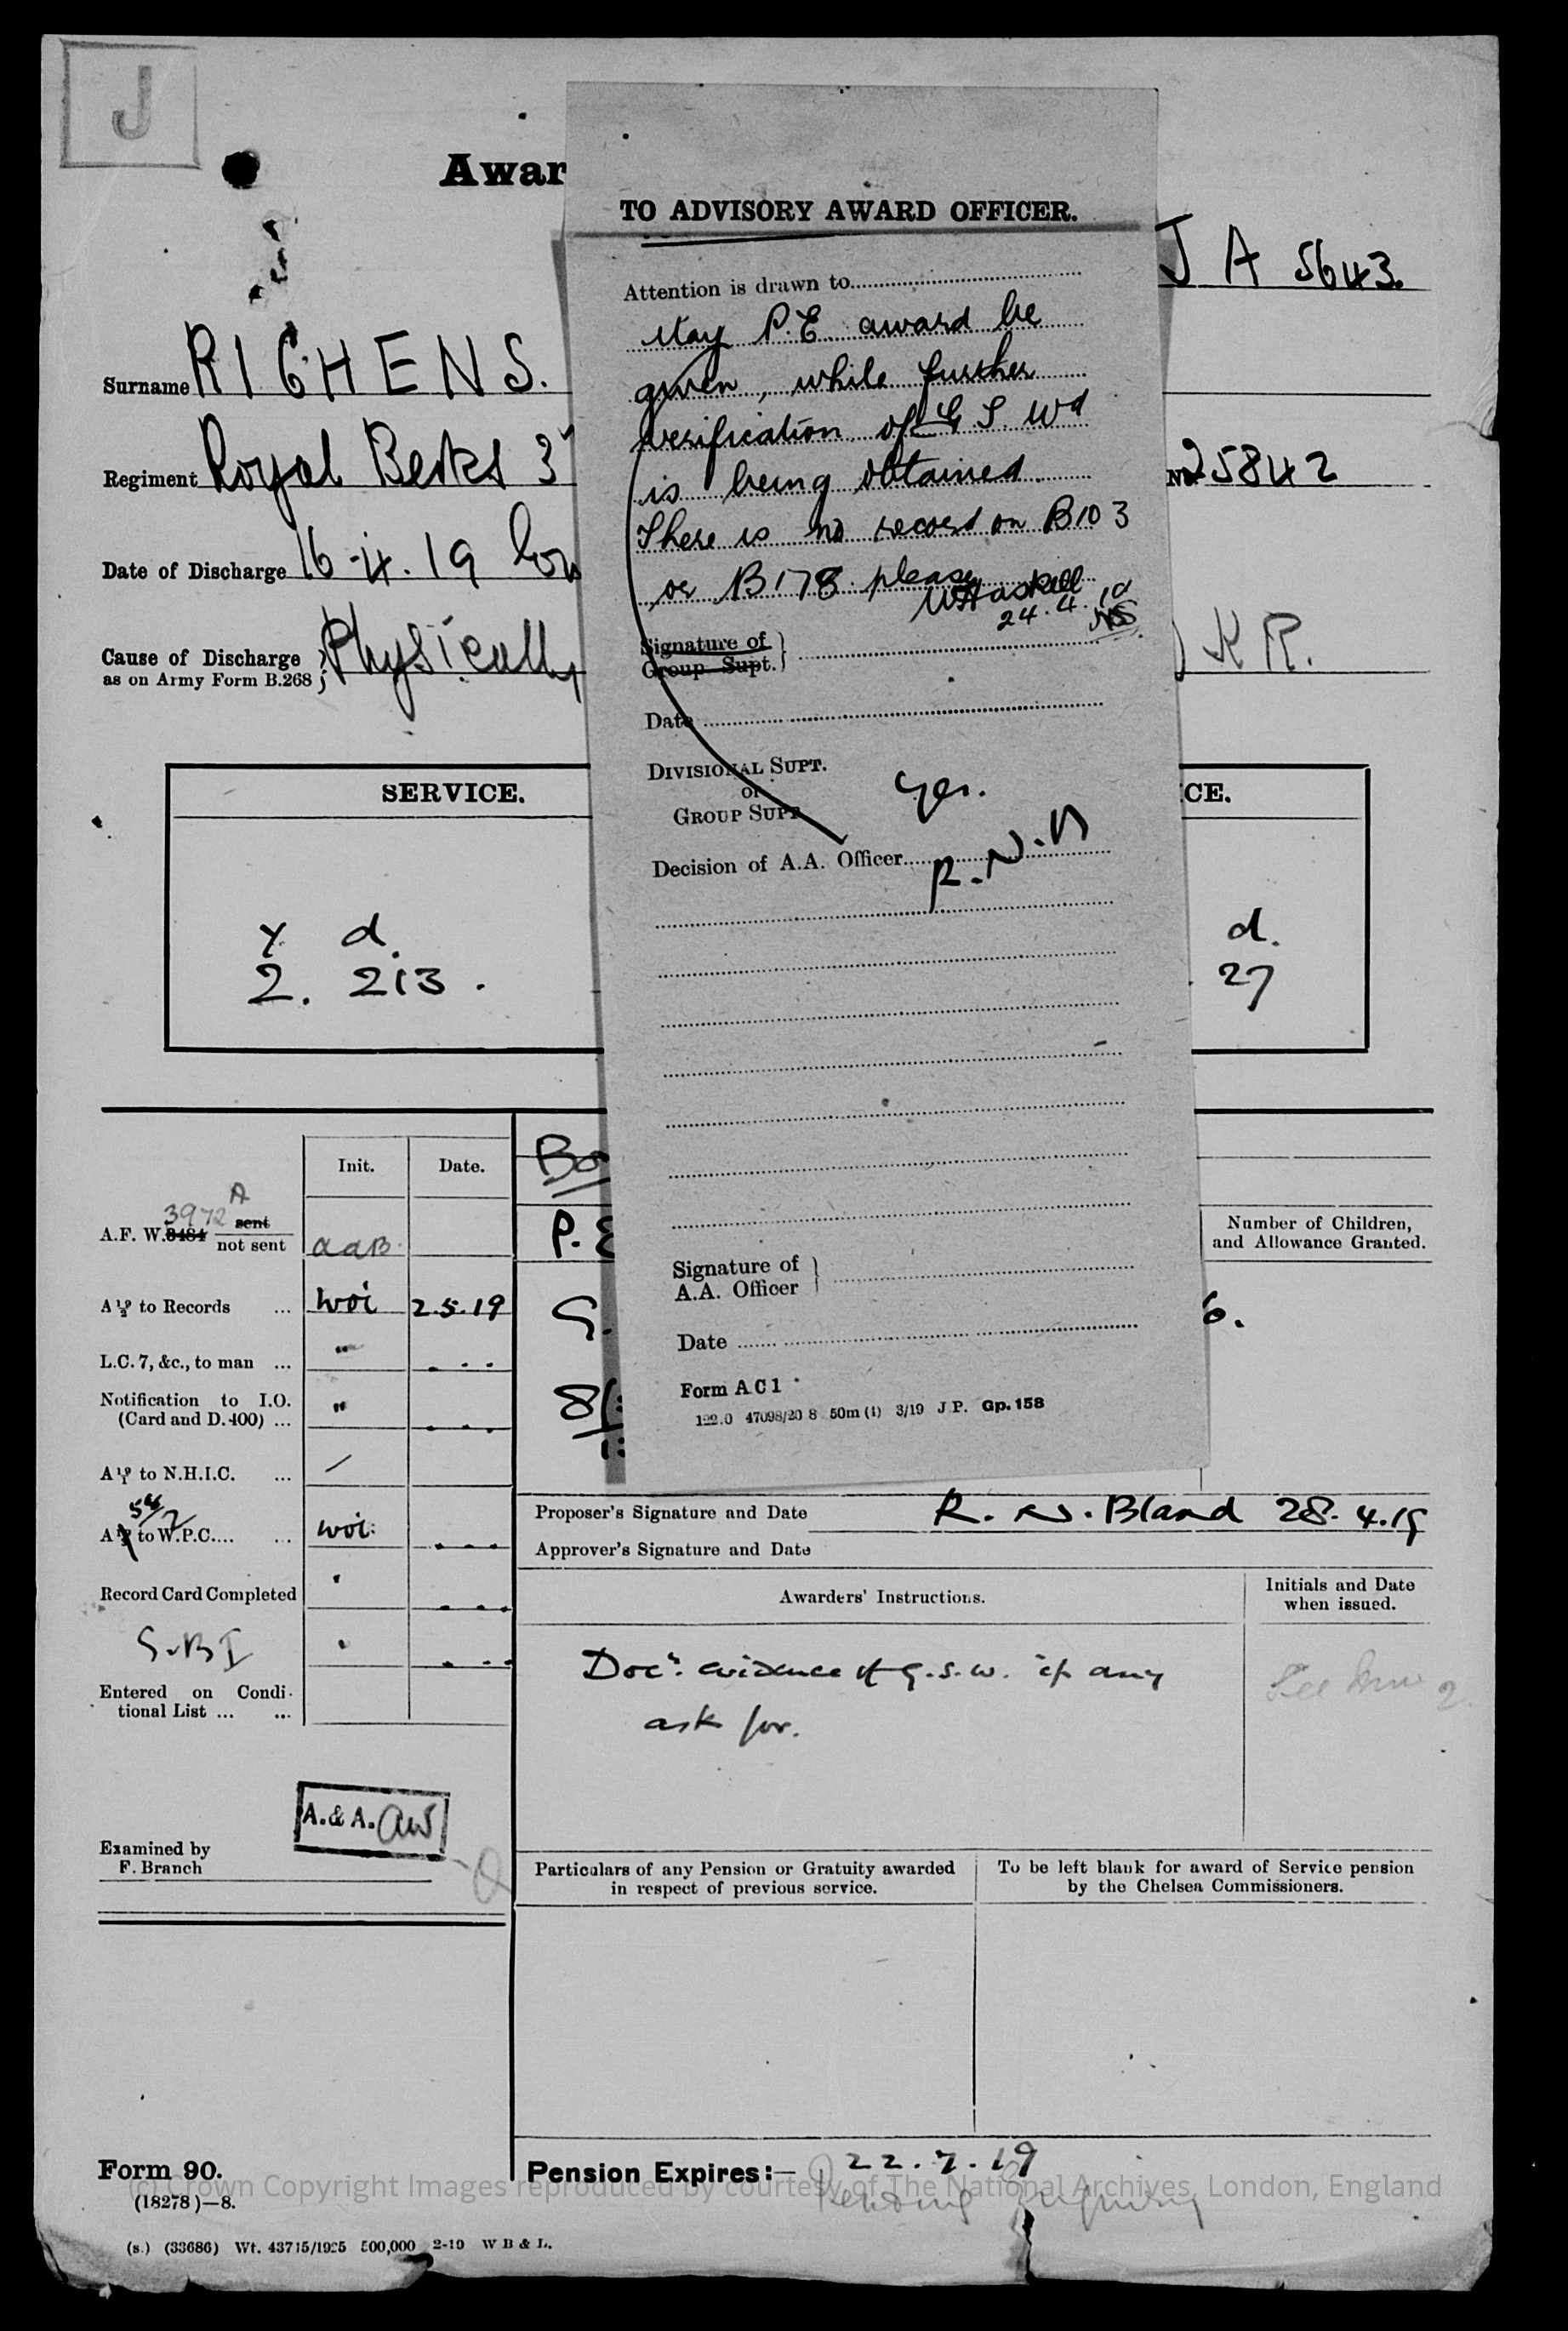 J
Awar
J A 5643.
Surname RICHENS.
Regiment Royal Berks 3
No. 25842
Date of Discharge 16-4.19
Cause of Discharge
as on Army Form B.268
Physically
K R.
TO ADVISORY AWARD OFFICER.
Attention is drawn to
May P.E award be
given, while further
verification of G S. Wd
is being obtained.
There is no record on B103
or B178 please
WHaskell
24.4.19
Signature of
Group Supt.
Date
DIVISIONAL SUPT.
or
GROUP SUPT
Yes.
Decision of A.A. Officer R.N.B
Signature of
A.A. Officer
Date
Form A C 1
122.0 47098/20 8 50m (1) 3/19 J P. Gp. 158
SERVICE.
CE.
y d.
2. 213.
d.
27
Init. Date.
3972 A
A.F. W.3484 sent
not sent aaB.
A 19/2 to Records ... woi 2.5.19
L.C. 7, &c., to man ... "
Notification to I.O.
(Card and D.400) ... "
A 19/1 to N.H.I.C. ...
54/2
A to W.P.C.... ... woi.
Record Card Completed
S.B I
Entered on Condi-
tional List ... ...
A. & A. aw
Examined by
F. Branch
P.E
Number of Children,
and Allowance Granted.
6.
Proposer's Signature and Date R. N. Bland 28.4.19
Approver's Signature and Date
Awarders' Instructions.
Initials and Date
when issued.
Doc. evidence of g.s.w. if any
ask for.
Particulars of any Pension or Gratuity awarded
in respect of previous service.
To be left blank for award of Service pension
by the Chelsea Commissioners.
Form 90.
(18278)—8.
(s.) (33686) Wt. 43715/1925 500,000 2-19 W B & L.
Pension Expires:— 22.7.19
Pending Inquiry
(c) Crown Copyright Images reproduced by courtesy of The National Archives, London, England